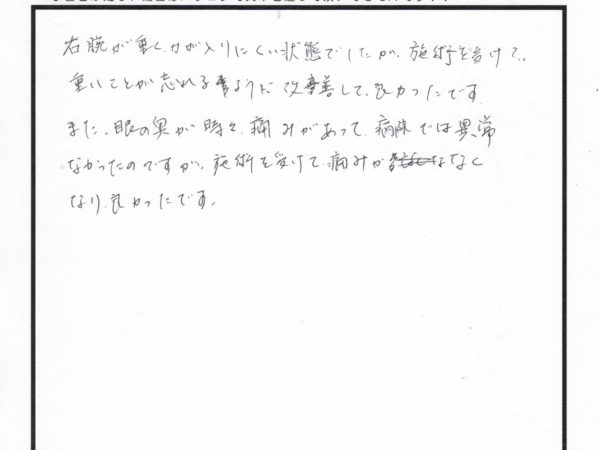 右腕が重く、力が入りにくい状態でしたが、施術を受けて、
重いことが忘れるように改善して、良かったです
また、眼の奥が時々、痛みがあって、病院では異常
なかったのですが、施術を受けて、痛みがなく
なり、良かったです。